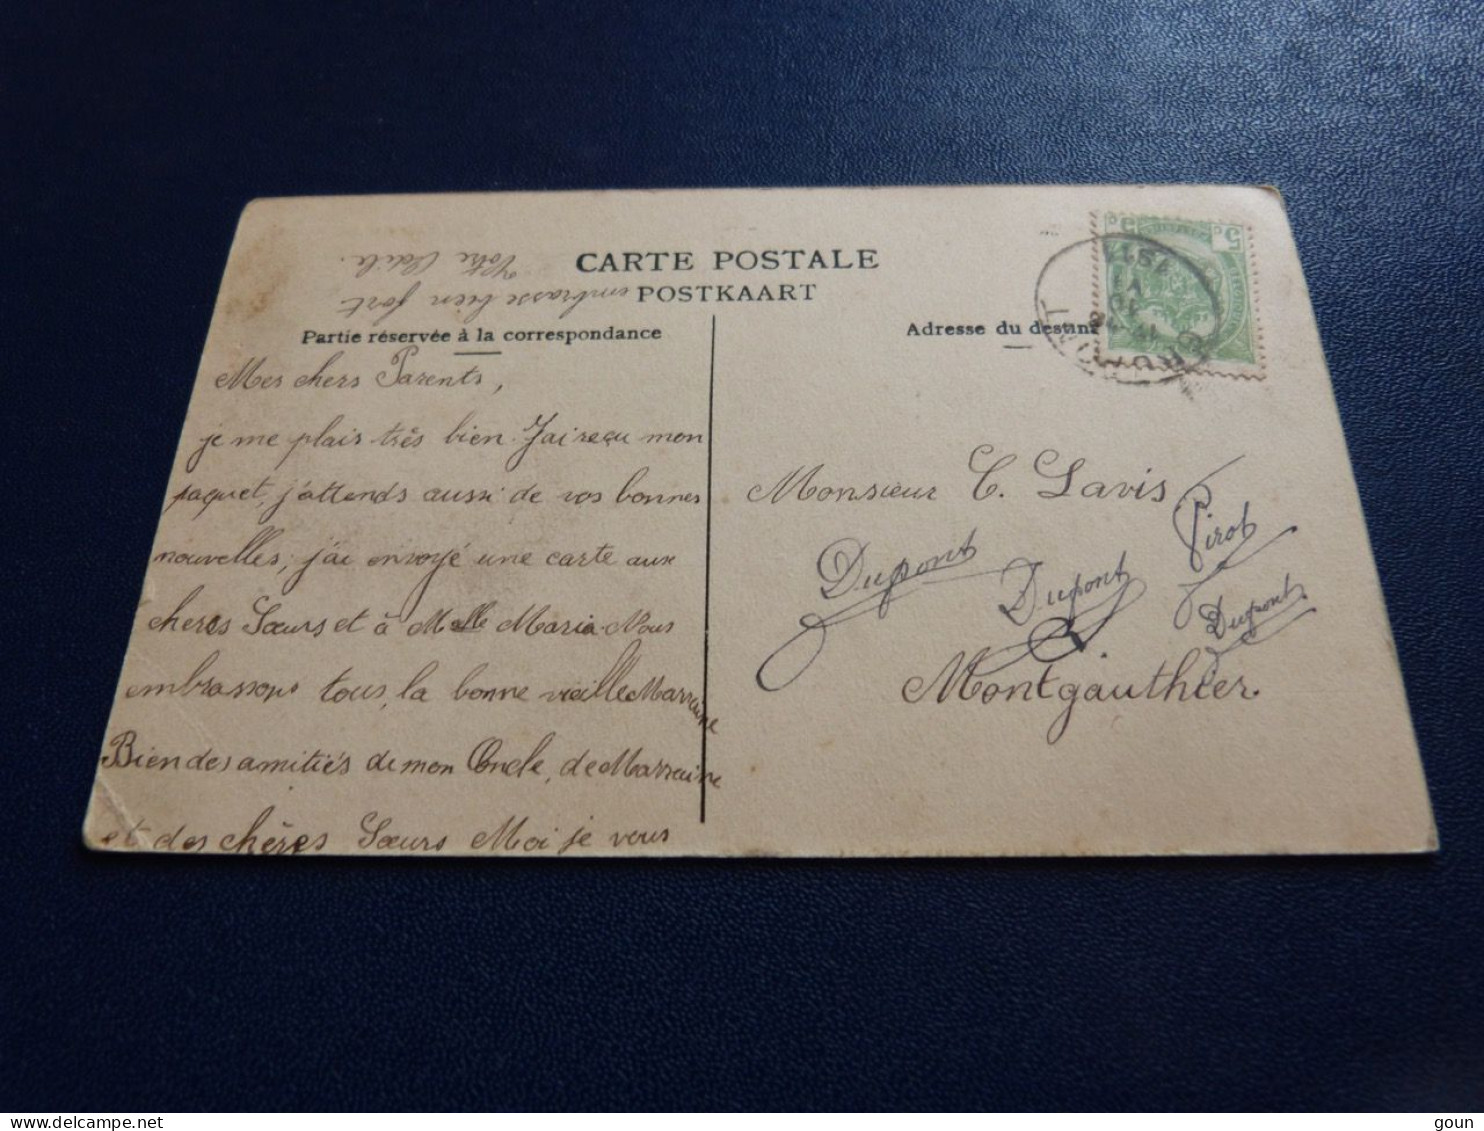 CARTE POSTALE
POSTKAART
Partie réservée à la correspondance
Adresse du destina
Mes chers Parents,
je me plais très bien. J'ai reçu mon
paquet, j'attends aussi de vos bonnes
nouvelles, j'ai envoyé une carte aux
chères Sœurs et à Melle Maria. Nous
embrassons tous, la bonne vieille Marraine
Bien des amitiés de mon Oncle, de Marraine
et des chères Sœurs Moi je vous
embrasse bien fort
Votre Cécile.
Monsieur C. Lavis
Pirot
Dupont
Dupont
Dupont
Montgauthier.
5c
5c
1911
delcampe.net
goun